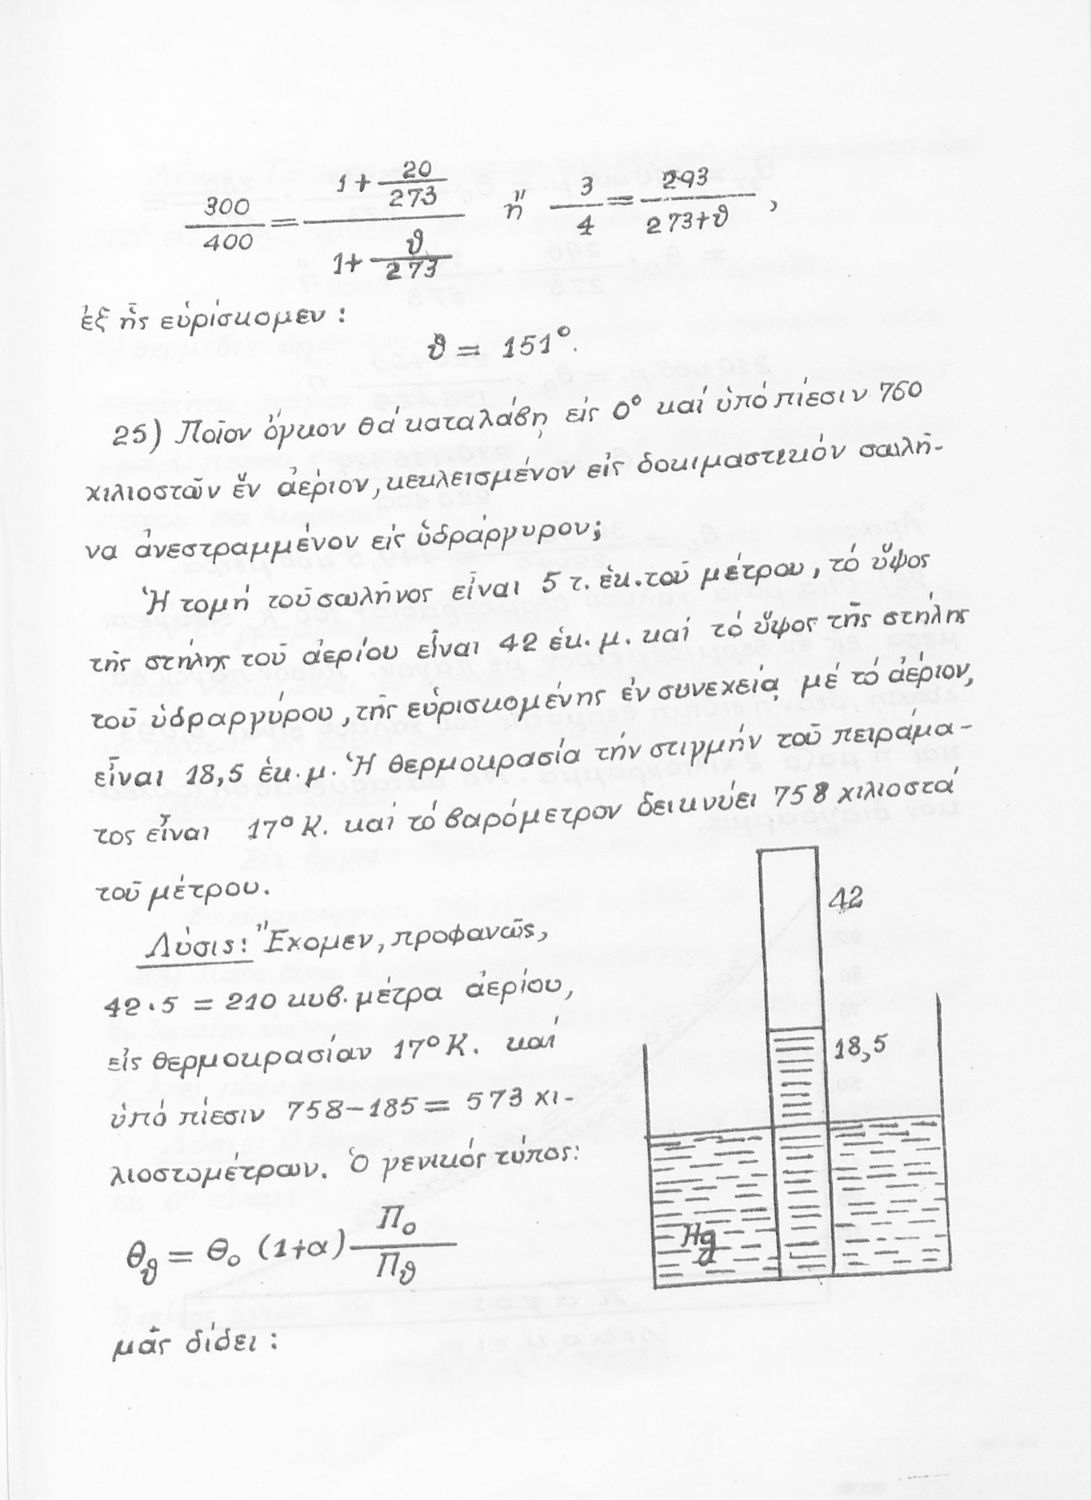 300/400 = (1+ 20/273)/(1+ ϑ/273) ἤ 3/4 = 293/(273+ϑ) ,
ἐξ ἧς εὑρίσκομεν :
ϑ = 151°.
25) Ποῖον ὄγκον θά καταλάβῃ εἰς 0° καί ὑπό πίεσιν 760
χιλιοστῶν ἕν ἀέριον, κεκλεισμένον εἰς δοκιμαστικόν σωλῆ-
να ἀνεστραμμένον εἰς ὑδράργυρον;
Ἡ τομή τοῦ σωλῆνος εἶναι 5 τ. ἑκ. τοῦ μέτρου, τό ὕψος
τῆς στήλης τοῦ ἀερίου εἶναι 42 ἑκ. μ. καί τό ὕψος τῆς στήλης
τοῦ ὑδραργύρου, τῆς εὑρισκομένης ἐν συνεχείᾳ μέ τό ἀέριον,
εἶναι 18,5 ἑκ. μ. Ἡ θερμοκρασία τήν στιγμήν τοῦ πειράμα-
τος εἶναι 17° Κ. καί τό βαρόμετρον δεικνύει 758 χιλιοστά
τοῦ μέτρου.
Λύσις: Ἔχομεν, προφανῶς,
42·5 = 210 κυβ. μέτρα ἀερίου,
εἰς θερμοκρασίαν 17° Κ. καί
ὑπό πίεσιν 758-185 = 573 χι-
λιοστομέτρων. Ὁ γενικός τύπος:
Θϑ = Θο (1+α) Πο/Πϑ
μᾶς δίδει :
42
18,5
Hg